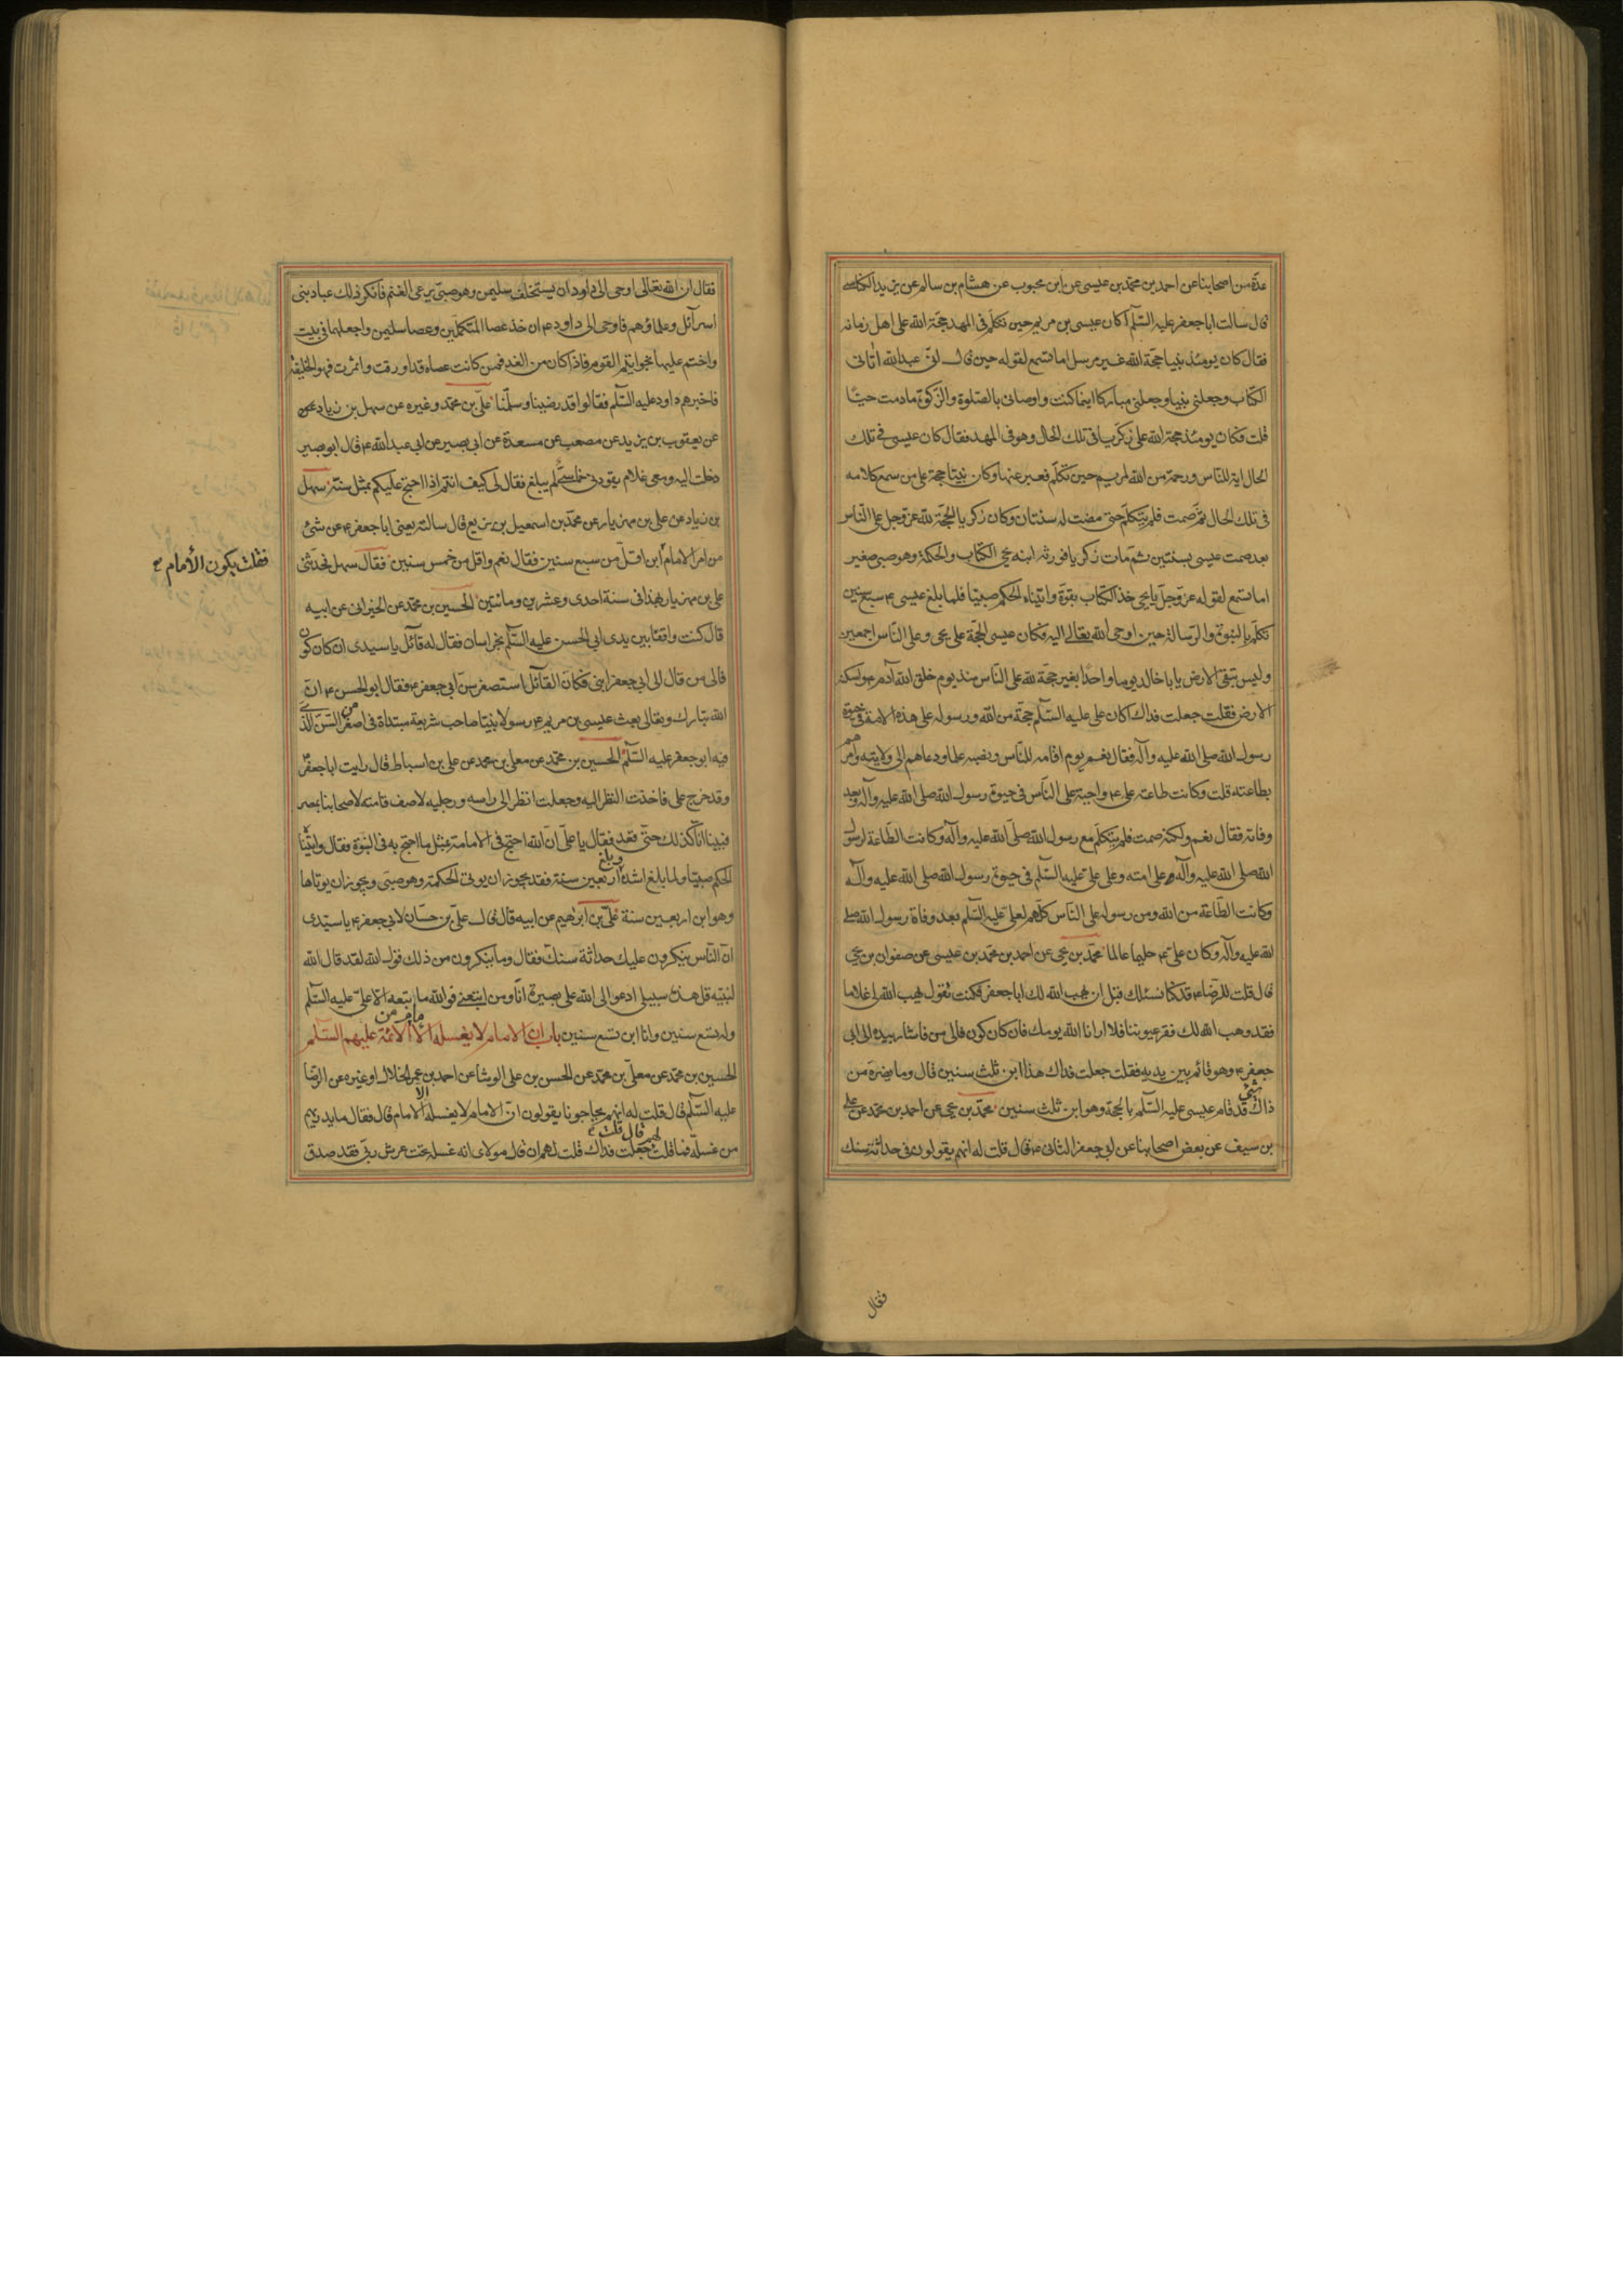 عدة من اصحابنا عن احمد بن محمد بن عيسى عن ابن محبوب عن هشام بن سالم عن يزيد الكناسى
قال سالت ابا جعفر عليه السلم اكان عيسى بن مريم حين تكلم فى المهد حجة الله على اهل زمانه
فقال كان يومئذ نبيا حجة الله غير مرسل اما تسمع لقوله حين قال انى عبد الله اتانى
الكتاب وجعلنى نبيا وجعلنى مباركا اينما كنت واوصانى بالصلوة والزكوة ما دمت حيا
قلت فكان يومئذ حجة الله على زكريا فى تلك الحال وهو فى المهد فقال كان عيسى فى تلك
الحال اية للناس ورحمة من الله لمريم حين تكلم فعبر عنها وكان نبيا حجة على من سمع كلامه
فى تلك الحال ثم صمت فلم يتكلم حتى مضت له سنتان وكان زكريا الحجة لله عز وجل على الناس
بعد صمت عيسى بسنتين ثم مات زكريا فورثه ابنه يحيى الكتاب والحكمة وهو صبى صغير
اما تسمع لقوله عز وجل يا يحيى خذ الكتاب بقوة واتيناه الحكم صبيا فلما بلغ عيسى ع سبع سنين
تكلم بالنبوة والرسالة حين اوحى الله تعالى اليه فكان عيسى الحجة على يحيى وعلى الناس اجمعين
وليس تبقى الارض يا با خالد يوما واحدا بغير حجة لله على الناس منذ يوم خلق الله آدم ع واسكنه
الارض فقلت جعلت فداك اكان على عليه السلم حجة من الله ورسوله على هذه الامة فى حيوة
رسول الله صلى الله عليه وآله فقال نعم يوم اقامه للناس ونصبه علما ودعاهم الى ولايته وامرهم
بطاعته قلت وكانت طاعة على ع واجبة على الناس فى حيوة رسول الله صلى الله عليه وآله وبعد
وفاته فقال نعم ولكنه صمت فلم يتكلم مع رسول الله صلى الله عليه وآله وكانت الطاعة لرسول
الله صلى الله عليه وآله على امته وعلى على عليه السلم فى حيوة رسول الله صلى الله عليه وآله
وكانت الطاعة من الله ومن رسوله على الناس كلهم لعلى عليه السلم بعد وفاة رسول الله صلى
الله عليه وآله وكان على ع حليما عالما محمد بن يحيى عن احمد بن محمد بن عيسى عن صفوان بن يحيى
قال قلت للرضا ع قد كنا نسئلك قبل ان يهب الله لك ابا جعفر فكنت تقول يهب الله لى غلاما
فقد وهب الله لك فقر عيوننا فلا ارانا الله يومك فان كان كون فالى من فاشار بيده الى ابى
جعفر ع وهو قائم بين يديه فقلت جعلت فداك هذا ابن ثلث سنين قال وما يضره من
ذاك شىء قد قام عيسى عليه السلم بالحجة وهو ابن ثلث سنين محمد بن يحيى عن احمد بن محمد عن على
بن سيف عن بعض اصحابنا عن ابى جعفر الثانى ع قال قلت له انهم يقولون فى حداثة سنك
فقال
فقال ان الله تعالى اوحى الى داود ان يستخلف سليمن وهو صبى يرعى الغنم فانكر ذلك عباد بنى
اسرآئل وعلماؤهم فاوحى الى داود ع ان خذ عصا المتكلمين وعصا سليمن واجعلها فى بيت
واختم عليها بخواتيم القوم فاذا كان من الغد فمن كانت عصاه قد اورقت واثمرت فهو الخليفة
فاخبرهم داود عليه السلم فقالوا قد رضينا وسلمنا على بن محمد وغيره عن سهل بن زياد
عن يعقوب بن يزيد عن مصعب عن مسعدة عن ابى بصير عن ابى عبد الله ع قال ابو بصير
دخلت اليه ومعى غلام يقودنى خماسى لم يبلغ فقال لى كيف انتم اذا احتج عليكم بمثل سنه سهل
بن زياد عن على بن مهزيار عن محمد بن اسمعيل بن بزيع قال سالته يعنى ابا جعفر ع عن شئ
من امر الامام ابن اقل من سبع سنين فقال نعم واقل من خمس سنين فقال سهل فحدثنى
فقلت يكون الأمام
على بن مهزيار بهذا فى سنة احدى وعشرين ومائتين الحسين بن محمد عن الخيرانى عن ابيه
قال كنت واقفا بين يدى ابى الحسن عليه السلم بخراسان فقال له قآئل يا سيدى ان كان كون
فالى من قال الى ابى جعفر ابنى فكان القآئل استصغر سن ابى جعفر ع فقال ابو الحسن ع ان
الله تبارك وتعالى بعث عيسى بن مريم ع رسولا نبيا صاحب شريعة مبتداة فى اصغر من السن الذى
فيه ابو جعفر عليه السلم الحسين بن محمد عن معلى بن محمد عن على بن اسباط قال رايت ابا جعفر ع
وقد خرج على فاخذت النظر اليه وجعلت انظر الى راسه ورجليه لاصف قامته لاصحابنا بمصر
فبينا انا كذلك حتى قعد فقال يا على ان الله احتج فى الامامة بمثل ما احتج به فى النبوة فقال واتيناه
الحكم صبيا ولما بلغ اشده وبلغ اربعين سنة فقد يجوز ان يوتى الحكمة وهو صبى ويجوز ان يوتاها
وهو ابن اربعين سنة على بن ابرهيم عن ابيه قال قال على بن حسان لابى جعفر ع يا سيدى
ان الناس ينكرون عليك حداثة سنك فقال وما ينكرون من ذلك قول الله لقد قال الله
لنبيه قل هذه سبيلى ادعوا الى الله على بصيرة انا ومن اتبعنى فوالله ما تبعه الا على عليه السلم
وله تسع سنين وانا ابن تسع سنين باب ان الامام لا يغسله الا امام من الائمة عليهم السلم
الحسين بن محمد عن معلى بن محمد عن الحسن بن على الوشا عن احمد بن عمر الحلال او غيره عن الرضا
عليه السلم قال قلت له انهم يحاجونا يقولون ان الامام لا يغسله الا الامام قال فقال ما يدريهم
من غسله فما قلت لهم قال قلت جعلت فداك قلت لهم ان قال مولاى انه غسله تحت عرش ربى فقد صدق